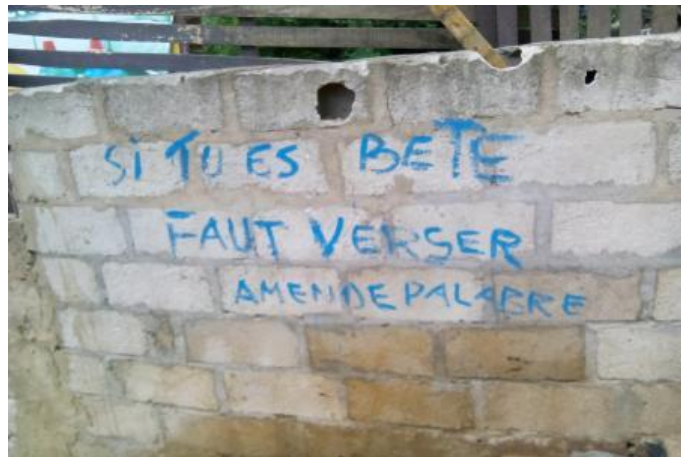 SI TU ES BETE
FAUT VERSER
AMENDE PALABRE